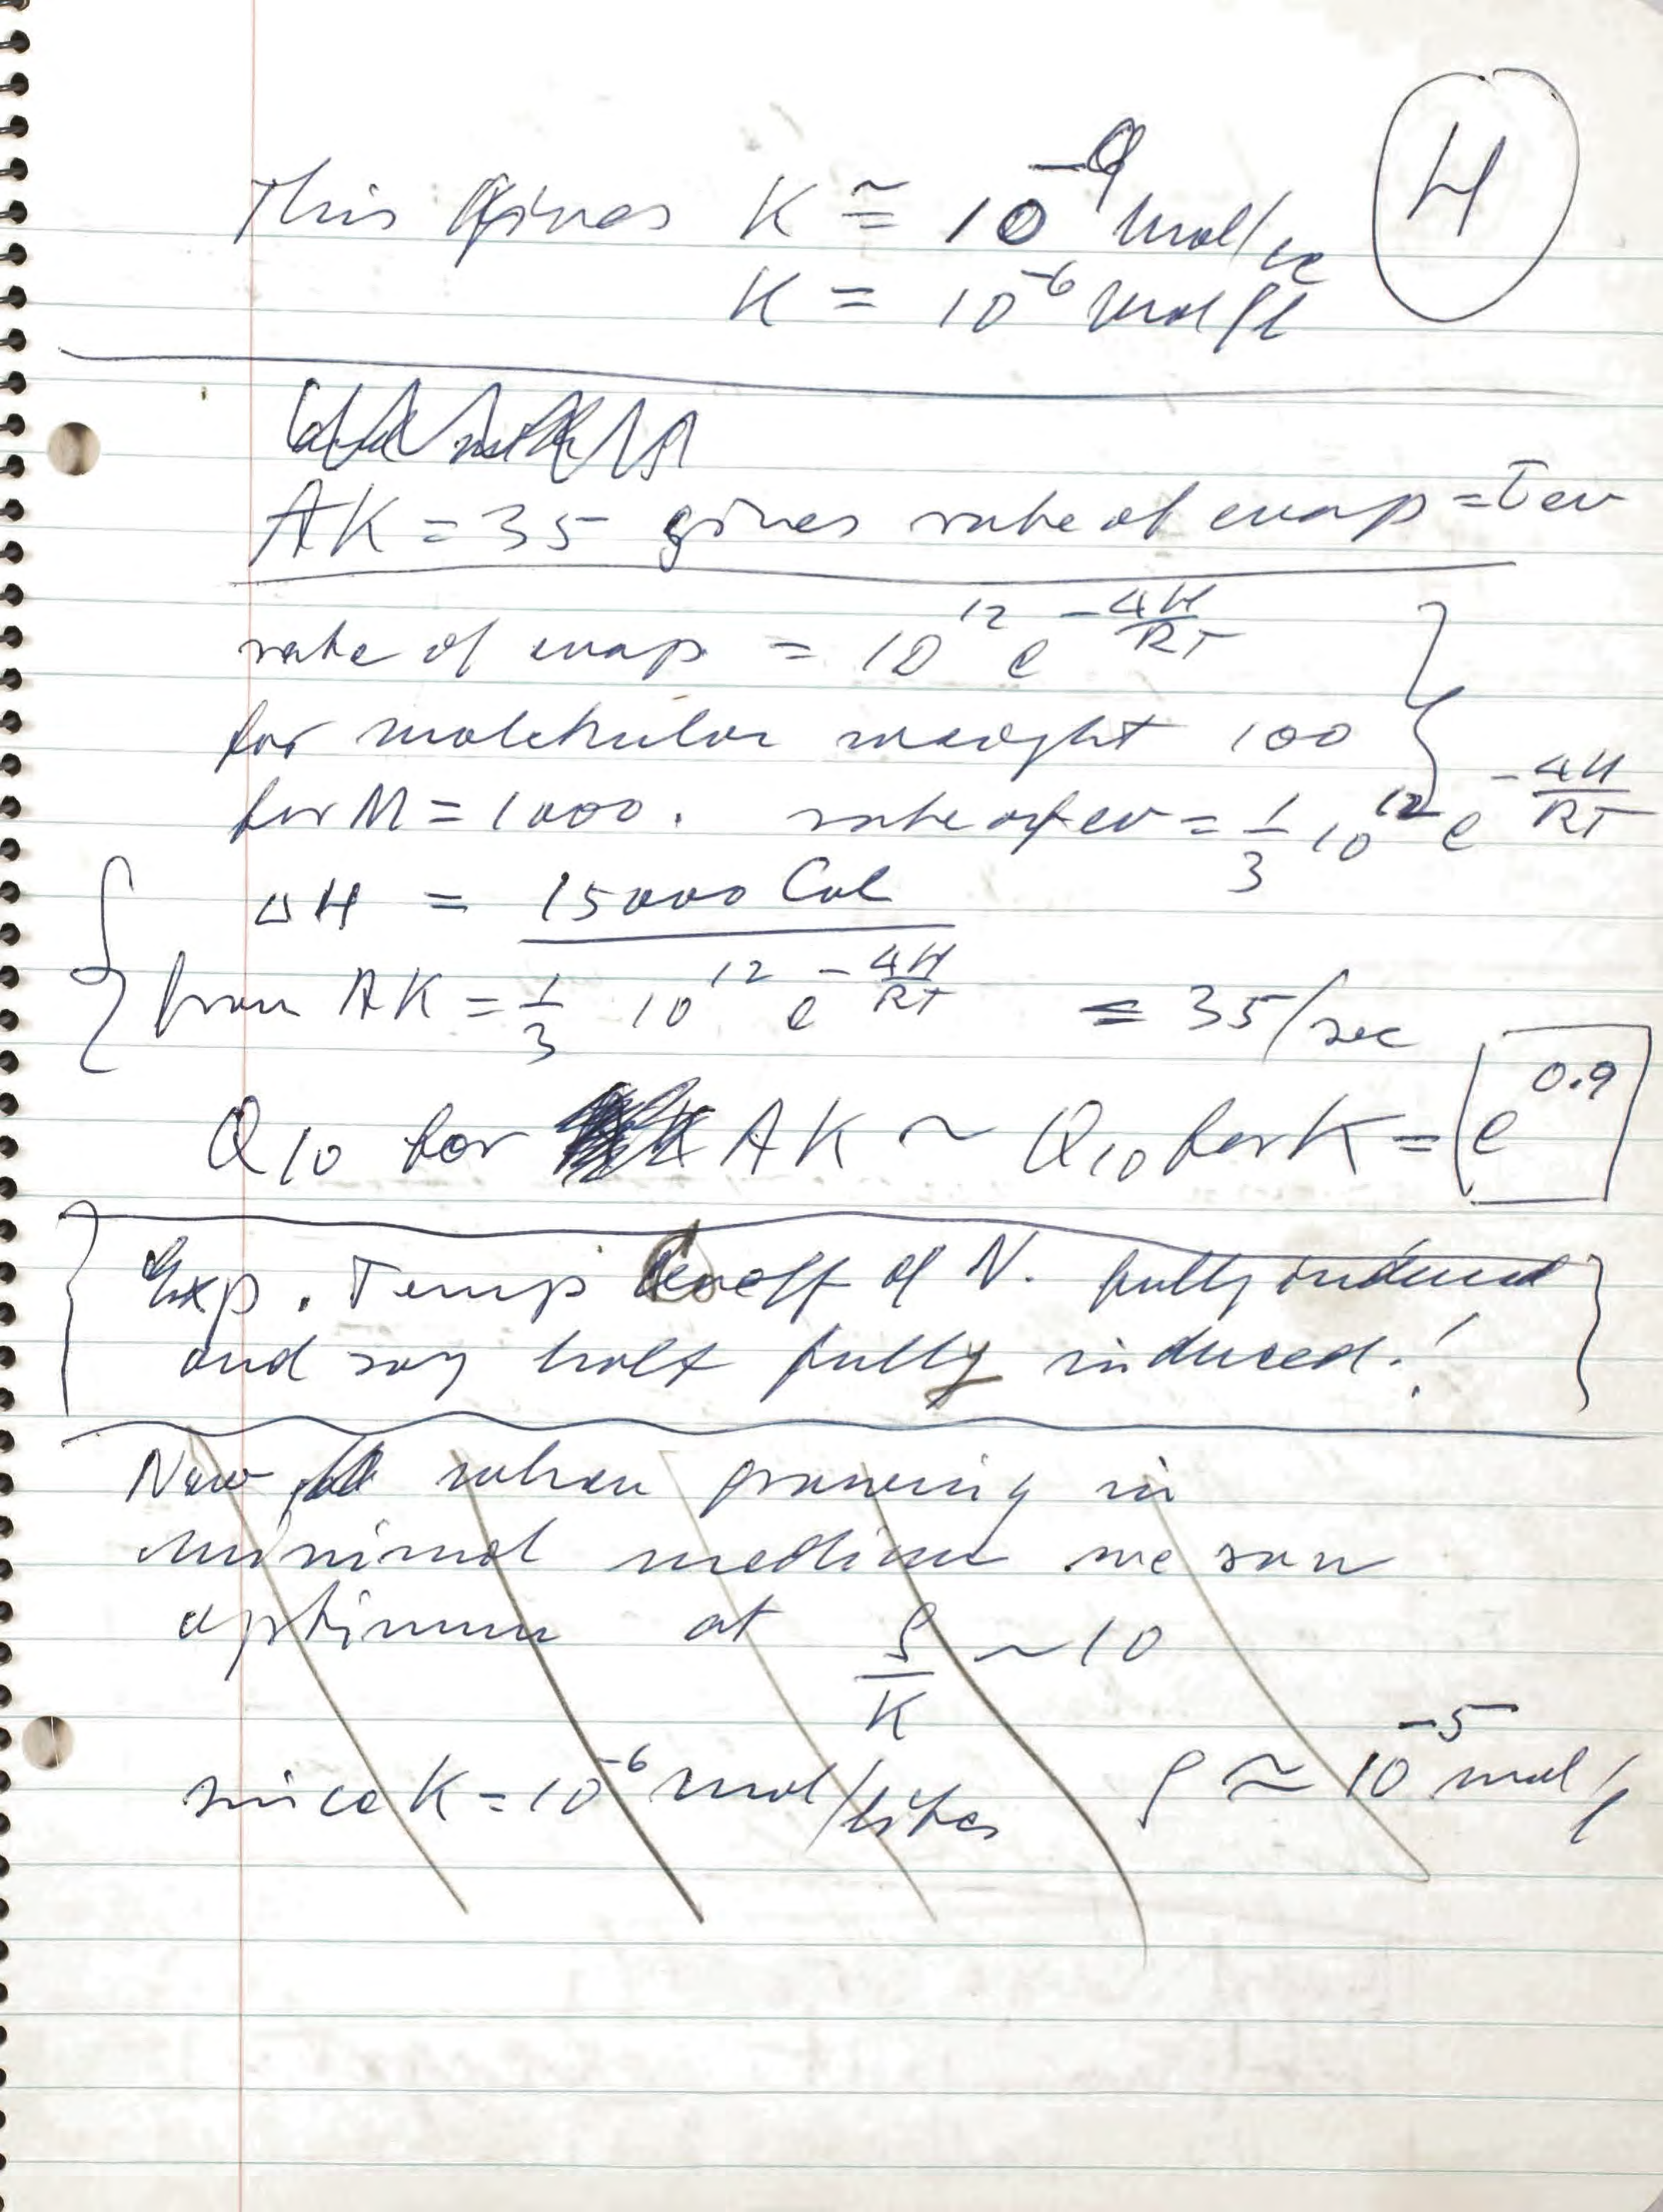 H
This gives K ≅ 10⁻⁹ mol/cc
K = 10⁻⁶ mol/l
AK = 35 gives rate of evap = τev
rate of evap = 10¹² e^(-ΔH/RT)
for molekular weight 100
for M = 1000. rate of ev = 1/3 10¹² e^(-ΔH/RT)
ΔH = 15000 Cal
from AK = 1/3 10¹² e^(-ΔH/RT) = 35/sec
Q10 for AK ~ Q10 for K = e^0.9
Exp. Temp Coeff of N. fully induced
and say half fully induced!
Now when growing in
minimal medium we saw
optimum at ρ/K ~ 10
since K = 10⁻⁶ mol/liter ρ ≈ 10⁻⁵ mol/l